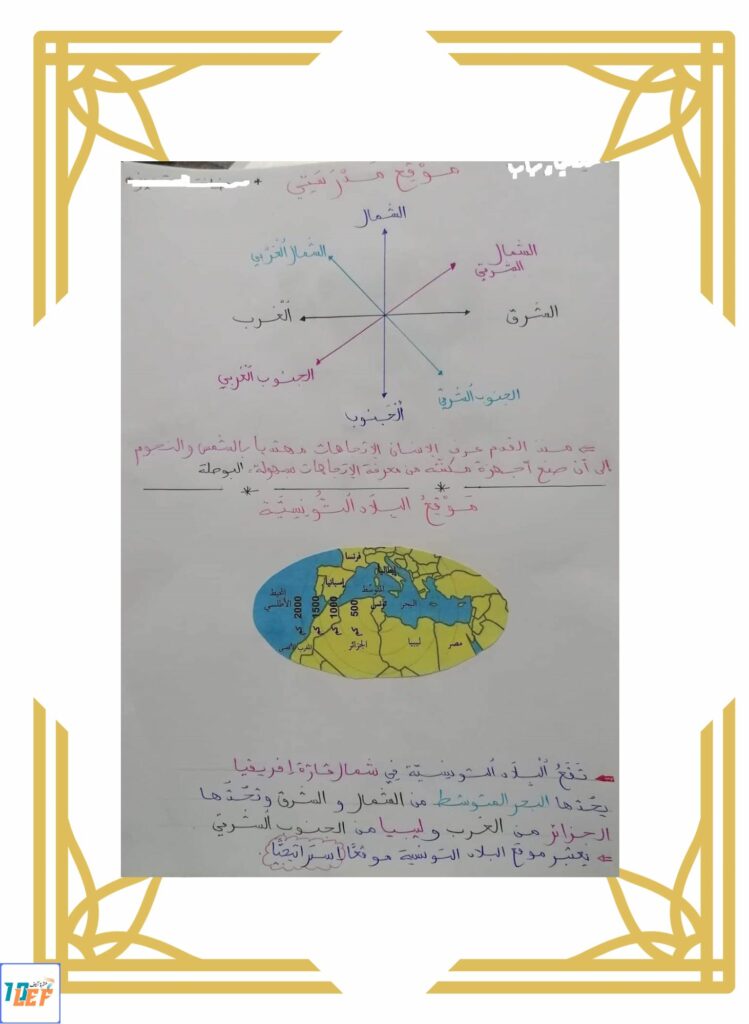 موقع مدرستي
الشمال
الشمال الغربي
الشمال
الشرقي
الغرب
الشرق
الجنوب الغربي
الجنوب الشرقي
الجنوب
منذ القدم عرف الإنسان الاتجاهات مهتديا بالشمس والنجوم
إلى أن صنع أجهزة مكنته من معرفة الإتجاهات بسهولة: البوصلة
مَوْقِعُ البِلَادِ التُّونِسِيَّة
فرنسا
إيطاليا
إسبانيا
المحيط
الأطلسي
المتوسط
البحر
تونس
2000 كم
1500 كم
1000 كم
500 كم
المغرب الأقصى
الجزائر
ليبيا
مصر
تَقَعُ الْبِلَادُ التونسيّة في شمال قارّة إفريقيا
يحُدّها البحر المتوسّط من الشمال و الشرق وتحُدّها
الجزائر من الغرب و ليبيا من الجنوب الشرقي
يعتبر موقع البلاد التونسية موقعًا إستراتيجيًّا
10LEF